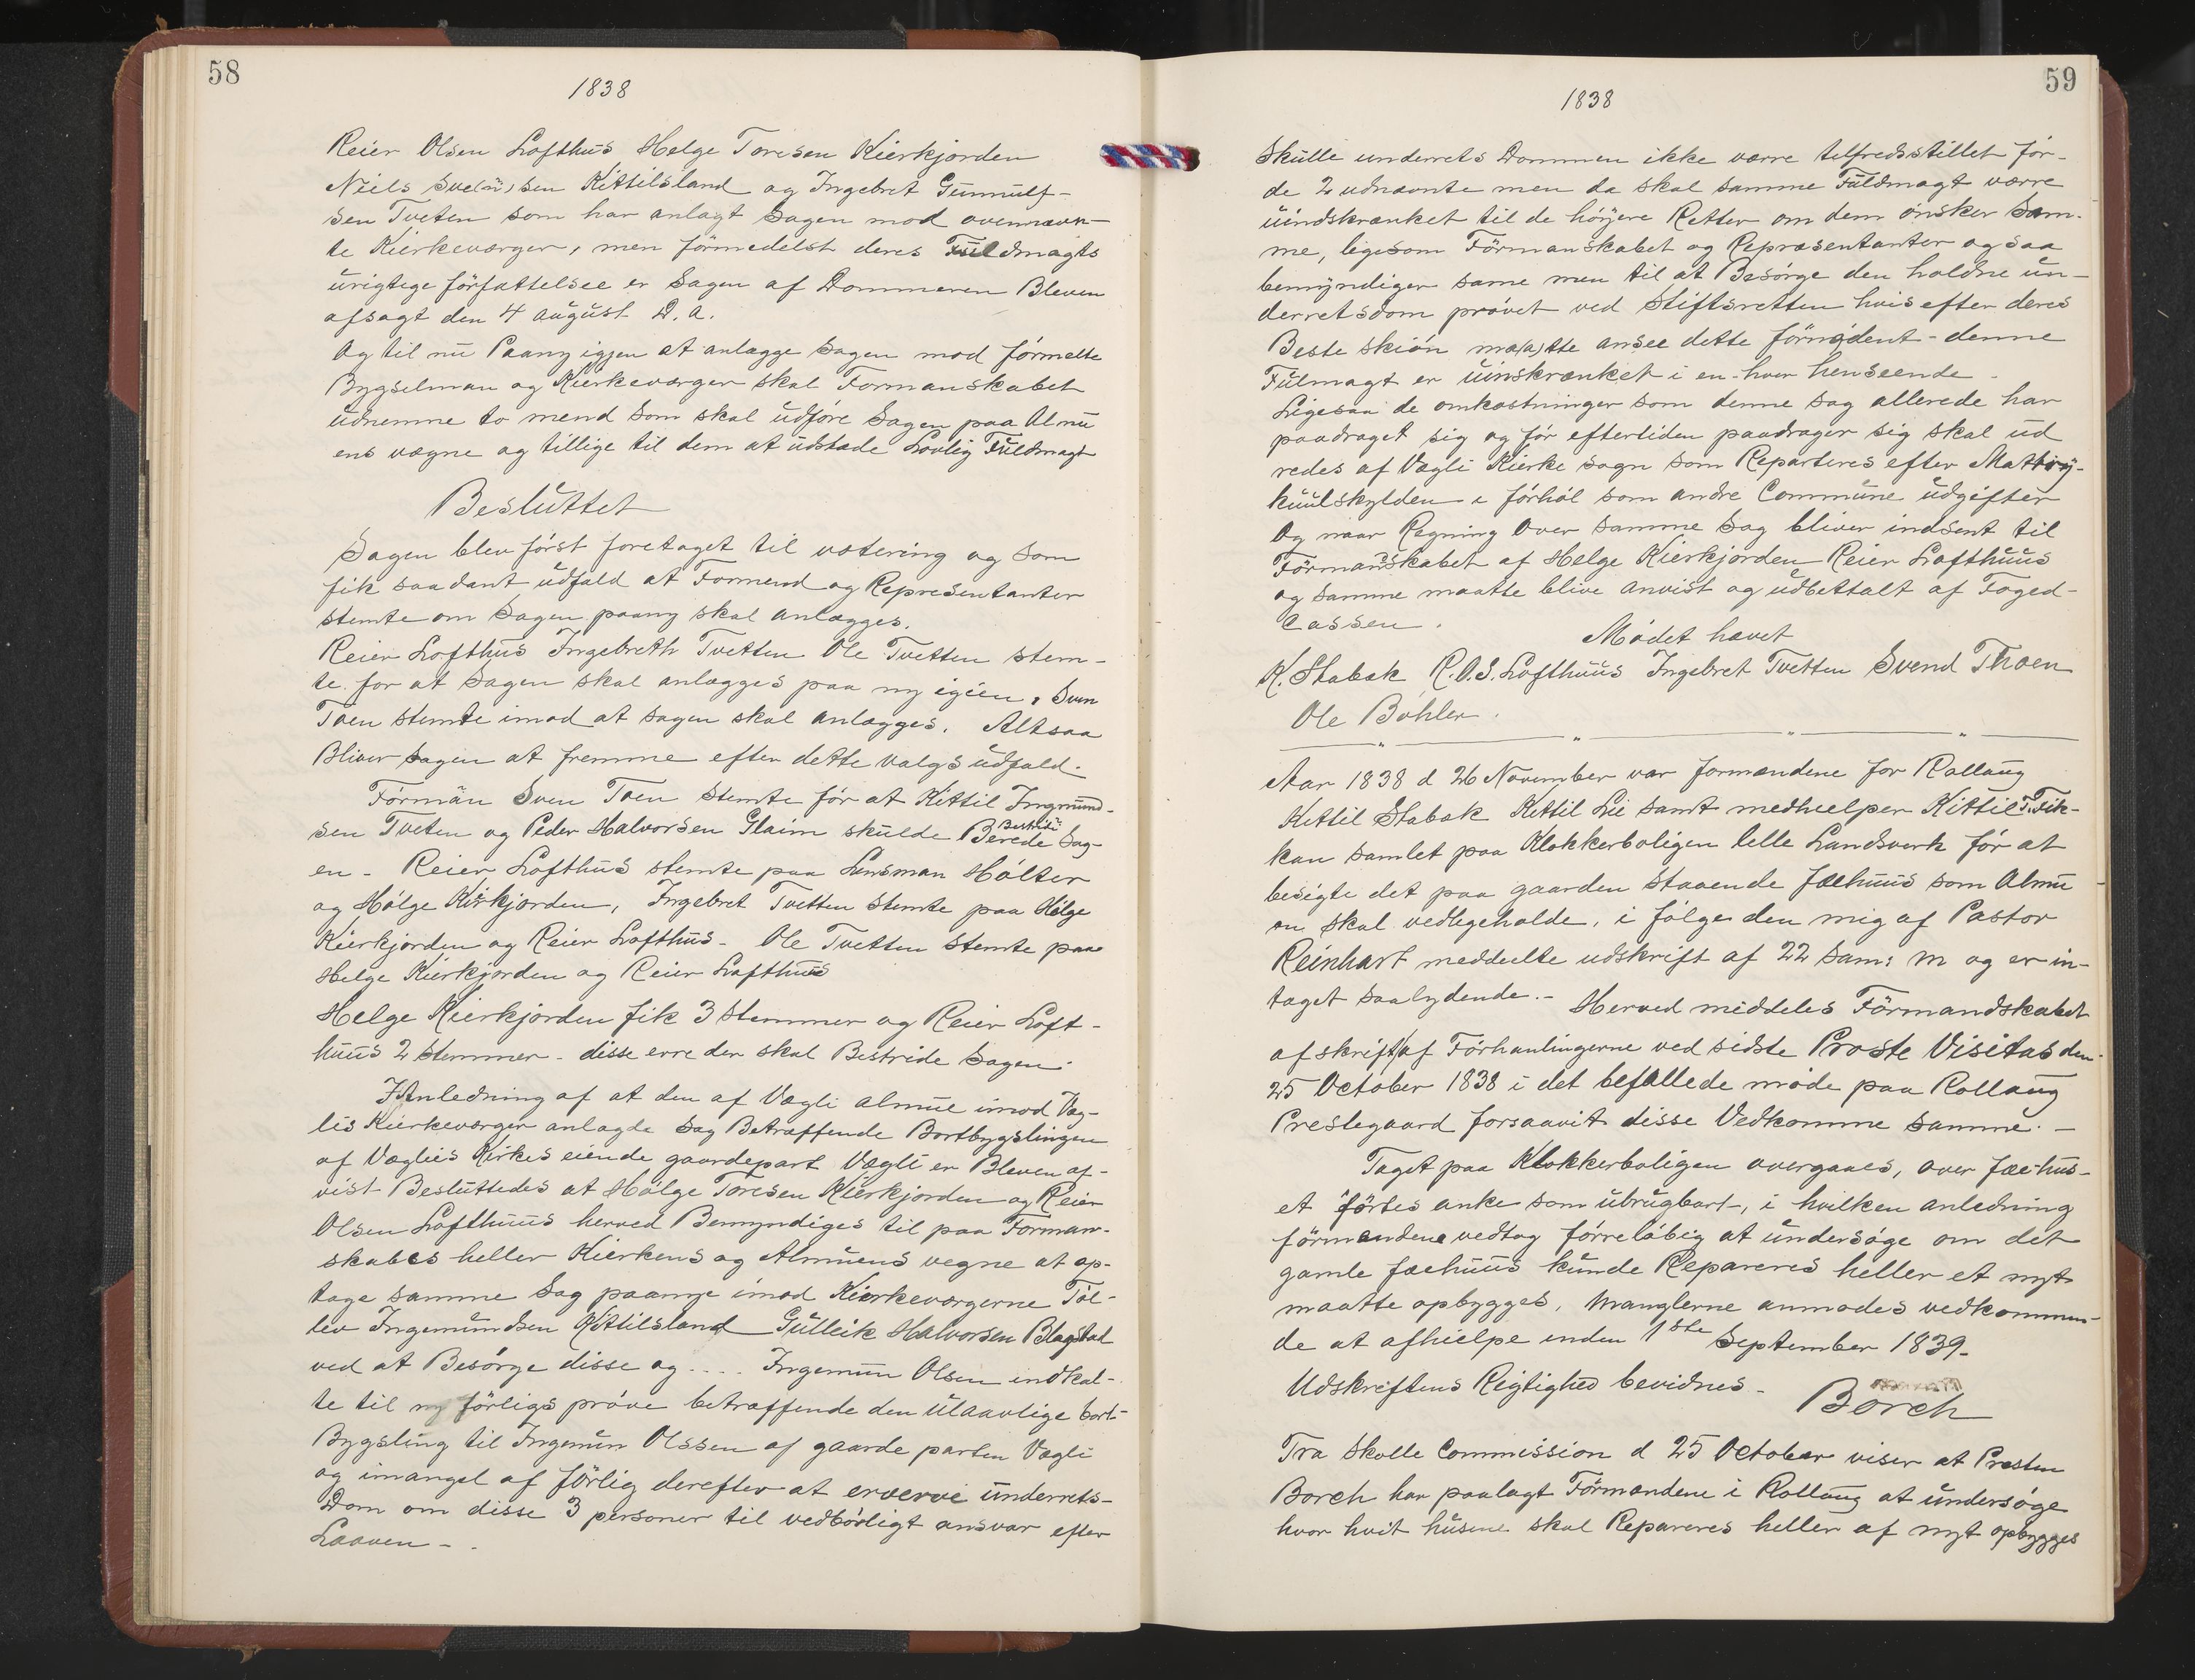 58
1838
Reier Olsen Lofthus Helge Toresen Kierkjorden
Niels Sve(n)sen Kittilsland og Ingebret Gunnulf-
sen Tveten som har anlagt Sagen mod ovennævn-
te Kierkeværger, men formedelst deres Fuldmagts
urigtige författelsee er Sagen af Dommeren Bleven
afsagt den 4 august D. a.
Og til nu Paany igjen at anlægge Sagen mod formelte
Bygselman og Kierkeværger skal Formanskabet
udnemne to mend som skal udføre Sagen paa Almu
ens vægne og tillige til dem at udstæde Lovlig Fuldmagt
Besluttet
Sagen blev først foretaget til votering og som
fik saadant udfald at Formend og Representanter
stemte om Sagen paany skal anlægges.
Reier Lofthus Ingebreth Tvetten Ole Tvetten stem-
te for at Sagen skal anlægges paa ny igien, Sven
Toen stemte imod at sagen skal anlægges. Altsaa
Bliver sagen at fremme efter dette valgs udfald.
Förmän Sven Toen stemte för at Kittil Ingmund-
sen Tveten og Peder Halvorsen Glaim skulde Berede Sag-
Bestride
en - Reier Lofthus stemte paa Lensman Hólter
og Hólge Kirkjorden, Ingebret Tvetten stemte paa Helge
Kierkjorden og Reier Lofthus - Ole Tvetten stemte paa
Helge Kierkjorden og Reier Lofthuus
Helge Kierkjorden fik 3 stemmer og Reier Loft-
huus 2 stemmer - disse erre der skal Bestride Sagen.
I Anledning af at den af Vægli almue imod Væg-
lis Kierkeværger anlagde Sag Betræffende Bortbygslingen
af Væglies Kirkes eiende gaardepart Vægli er Bleven af-
vist Besluttedes at Hólge Toresen Kierkjorden og Reier
Olsen Lofthuus herved Bemyndiges til paa Forman-
skabes heller Kierkens og Almuens vegne at op-
tage samme Sag paanye imod Kierkeværgerne Tol-
lev Ingemundsen Kittilsland Gulleik Halvorsen Blagstad
ved at Besörge disse og .... Ingemun Olsen indkal-
te til ny förligs pröve betræffende den ulaavlige bort-
Bygsling til Ingemun Olssen af gaarde parten Vægli
og imangel af förlig derefter at erverve underrets-
Dom om disse 3 personer til vedbörligt ansvar efter
Laaven -
59
1838
Skulle underrets Dommen ikke værre telfredsstillet för-
de 2 udnævnte men da skal samme Fuldmagt værre
uindskrænket til de höyere Retter om dem önsker Sam-
me, ligesom Förmanskabet og Repræsentanter ogsaa
bemyndiger same men til at Besórge den holdne un-
derretsdom prövet ved Stiftsretten hvis efter deres
Beste skiön ma(a)tte ansee dette förnödent - denne
Fulmagt er uinskrænket i en hver henseende -
Ligesaa de omkostninger som denne sag allerede har
paadraget sig og för eftertiden paadrager sig skal ud
redes af Vægli Kierke sogn som Reparteres efter Mattry-
kuulskylden i förhól som andre Commune udgifter
Og naar Regning Over samme Sag bliver indsent til
Förmanskabet af Helge Kierkjorden Reier Lofthuus
og samme maatte blive anvist og udbettalt af Foged-
Cassen.
Mödet hævet
K. Stabæk R.O.S. Lofthuus Ingebret Tvetten Svend Thoen
Ole Böhler.
Aar 1838 d 26 November var formændene for Rollaug
Kettil Stabæk Kettil Lie samt medhielper Kittil T. Fik-
kan samlet paa Klokkerboligen lelle Landsverk för at
besigte det paa gaarden staaende fæehuus som Almu
en skal vedligeholde, i følge den mig af Pastor
Reinhart meddeelte udskrift af 22 Sam: m og er in-
taget saalydende. - Herved middeles Förmandskabet
afskrift af Förhanlingerne ved sidste Proste Visitas den
25 October 1838 i det befallede möde paa Rollaug
Prestegaard forsaavit disse Vedkomme samme. -
Taget paa Klokkerboligen overgaaes, over fæehus-
et förtes anke som ubrugbart, i hvilken anledning
förmændene vedtog förreløbig at undersöge om det
gamle fæehuus kunde Repareres heller et nyt
maatte opbygges, Manglerne anmodes vedkommen-
de at afhielpe inden 1ste September 1839.
Udskriftens Rigtighed bevidnes -
Borch
Fra Skolle Commission d 25 October viser at Presten
Borch har paalagt Förmændene i Rollaug at undersöge
hvor hvit husene skal Repareres heller af nyt opbygges